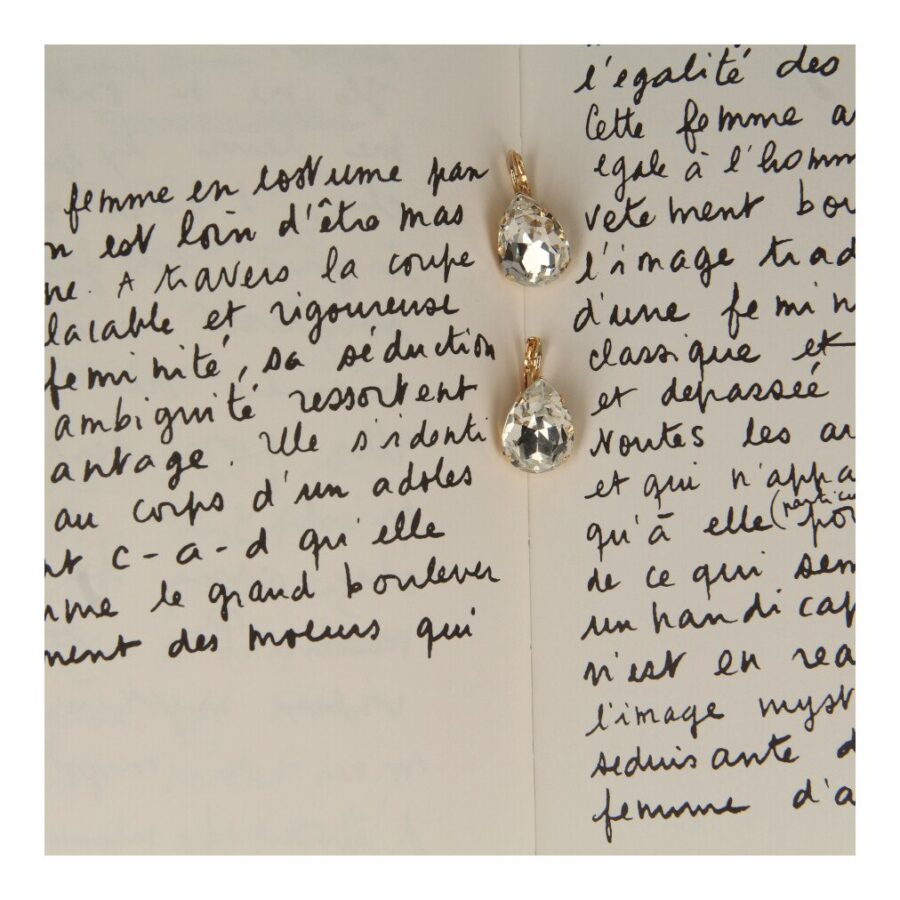 femme en costume pan
n est loin d'être mas
ne. A travers la coupe
lacable et rigoureuse
feminité, sa séduction
ambiguité ressortent
antage. Elle s'identi
au corps d'un adoles
nt c-a-d qu'elle
mme le grand boulever
ment des moeurs qui
l'egalité des
Cette femme a
egale à l'homm
vetement bou
l'image trad
d'une femin
classique et
et depassée
toutes les ar
et qui n'appa
qu'à elle (particu
pou
de ce qui sem
un handicap
n'est en rea
l'image myst
seduisante d
femme d'a